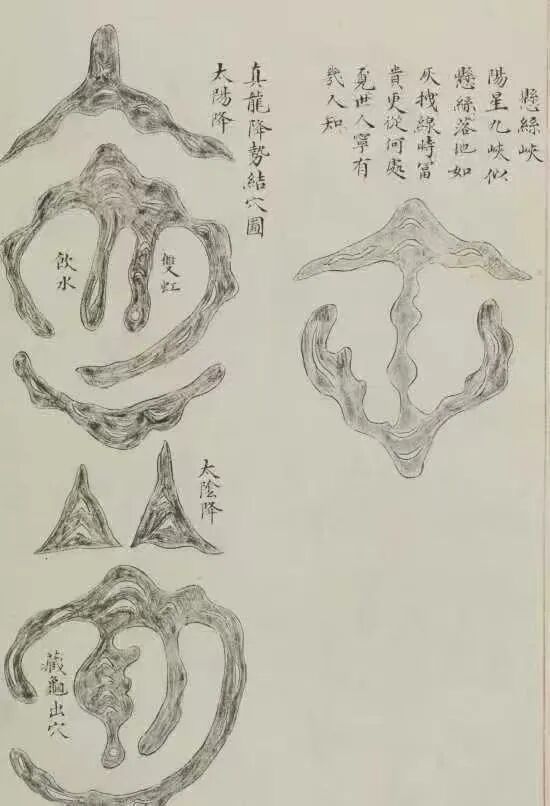 懸絲峽
陽星九峽似
懸絲落地如
灰拽線時富
貴更從何處
覓世人寧有
幾人知
真龍降勢結穴圖
太陽降
雙虹
飲水
太陰降
藏龜出穴